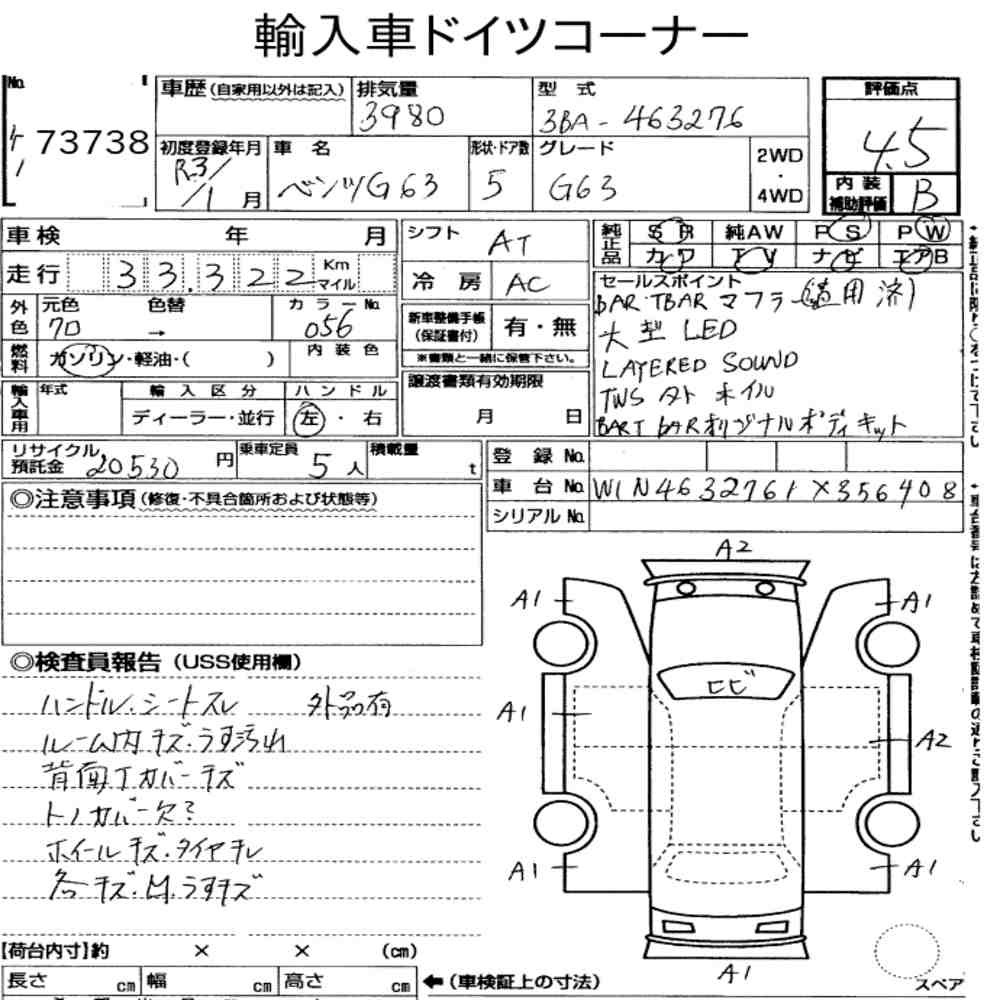 輸入車ドイツコーナー
No.
73738
車歴 (自家用以外は記入) 排気量 型式 評価点
3980 3BA-463276 4.5
初度登録年月 車名 形状・ドア数 グレード 2WD・4WD
R3/1月 ベンツG63 5 G63
内装補助評価 B
車検 年 月 シフト AT 純正品 SR 純AW PS PW
カワ TV ナビ エアB
走行 33,322 Km マイル 冷房 AC
セールスポイント
外色 元色 色替 カラーNo.
クロ → 056
新車整備手帳(保証書付) 有・無
※書類と一緒に保管下さい。
BAR・TBAR マフラー(適用済)
大型 LED
LAYERED SOUND
TWS タト ホイル
BART BARオリジナルボディキット
燃料 ガソリン・軽油・( ) 内装色
輸入車用 年式 輸入区分 ハンドル
ディーラー・並行 左・右
譲渡書類有効期限
月 日
リサイクル預託金 20530円 乗車定員 5人 積載量 t
登録No.
車台No. W1N4632761X356408
シリアルNo.
◎注意事項 (修復・不具合箇所および状態等)
A2
A1 A1
◎検査員報告 (USS使用欄)
ハンドル.シートスレ 外品有
ヒビ
A1
ルーム内キズ.うす汚れ
A2
背面Tカバーキズ
トノカバー欠?
ホイールキズ.タイヤキレ
A1 A1
各キズ.M.うすキズ
【荷台内寸】約 × × (cm)
長さ cm 幅 cm 高さ cm ←(車検証上の寸法)
A1
スペア